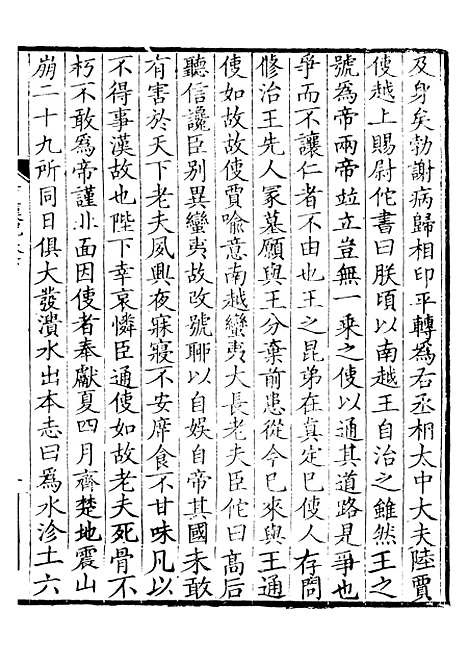 及身矣勃謝病歸相印平轉為右丞相太中大夫陸賈
使越上賜尉佗書曰朕頃以南越王自治之雖然王之
號為帝兩帝並立豈無一乘之使以通其道路是爭也
爭而不讓仁者不由也王之昆弟在真定已使人存問
修治王先人冢墓願與王分棄前患從今已來與王通
使如故故使賈喻意南越蠻夷大長老夫臣佗曰高后
聽信讒臣別異蠻夷故改號聊以自娛自帝其國未敢
有害於天下老夫夙興夜寐寢不安席食不甘味凡以
不得事漢故也陛下幸哀憐臣通使如故老夫死骨不
朽不敢為帝謹北面因使者奉獻夏四月齊楚地震山
崩二十九所同日俱大發潰水出本志曰為水沴土六